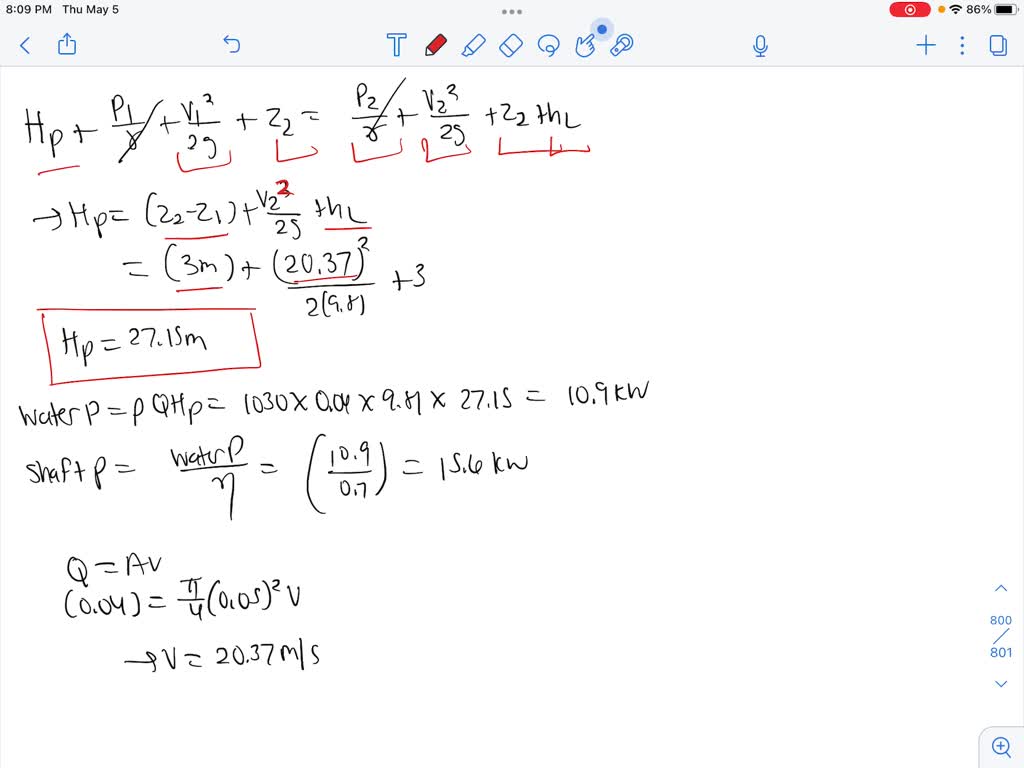 8:09 PM Thu May 5
86%
Hp + P1/γ + V1²/2g + Z2 = P2/γ + V2²/2g + Z2 + hL
→ Hp = (Z2-Z1) + V2²/2g + hL
= (3m) + (20.37)²/2(9.8) + 3
Hp = 27.15m
water P = ρ Q Hp = 1030 × 0.04 × 9.81 × 27.15 = 10.9 kW
Shaft P = water P/η = (10.9/0.7) = 15.6 kW
Q = AV
(0.04) = π/4 (0.05)² V
→ V = 20.37 m/s
800
/
801